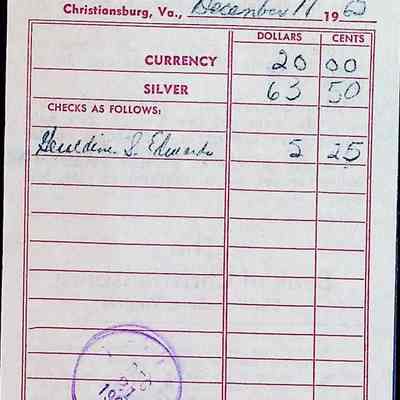 Christiansburg, Va., December 11 1963
DOLLARS CENTS
CURRENCY 20 00
SILVER 63 50
CHECKS AS FOLLOWS:
Geraldine S. Edwards 5 25